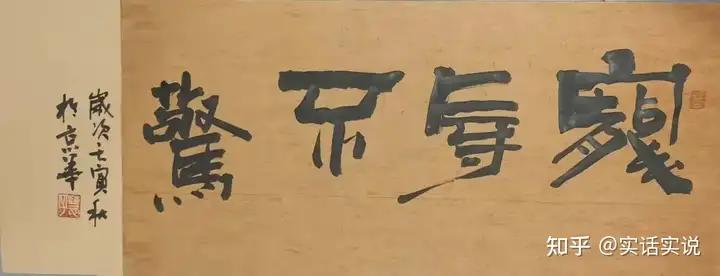 寵辱不驚
歲次壬寅秋
於京華
知乎 @实话实说